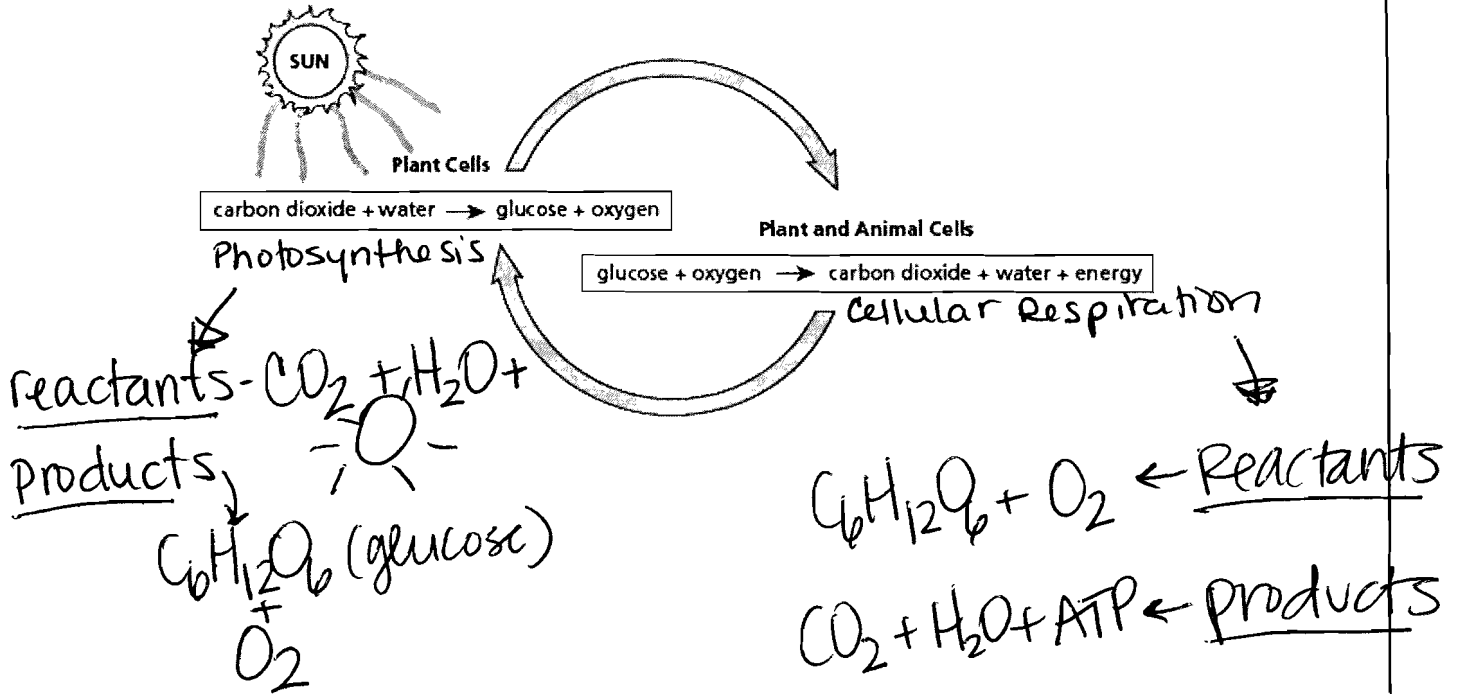 SUN
Plant Cells
carbon dioxide + water → glucose + oxygen
Photosynthesis
Plant and Animal Cells
glucose + oxygen → carbon dioxide + water + energy
Cellular Respiration
reactants - CO₂ + H₂O +
products
C₆H₁₂O₆ (glucose)
+
O₂
C₆H₁₂O₆ + O₂ ← Reactants
CO₂ + H₂O + ATP ← products